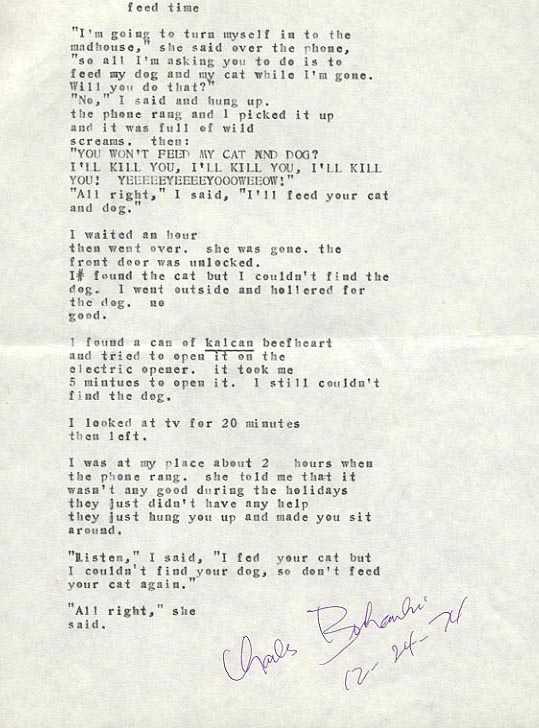 feed time
"I'm going to turn myself in to the
madhouse," she said over the phone,
"so all I'm asking you to do is to
feed my dog and my cat while I'm gone.
Will you do that?"
"No," I said and hung up.
the phone rang and I picked it up
and it was full of wild
screams. then:
"YOU WON'T FEED MY CAT AND DOG?
I'LL KILL YOU, I'LL KILL YOU, I'LL KILL
YOU! YEEEEEYEEEEYOOOWEEOW!"
"All right," I said, "I'll feed your cat
and dog."
I waited an hour
then went over. she was gone. the
front door was unlocked.
I# found the cat but I couldn't find the
dog. I went outside and hollered for
the dog. no
good.
I found a can of kalcan beefheart
and tried to open it on the
electric opener. it took me
5 mintues to open it. I still couldn't
find the dog.
I looked at tv for 20 minutes
then left.
I was at my place about 2 hours when
the phone rang. she told me that it
wasn't any good during the holidays
they just didn't have any help
they just hung you up and made you sit
around.
"Listen," I said, "I fed your cat but
I couldn't find your dog, so don't feed
your cat again."
"All right," she
said.
Charles Bukowski
12-24-74